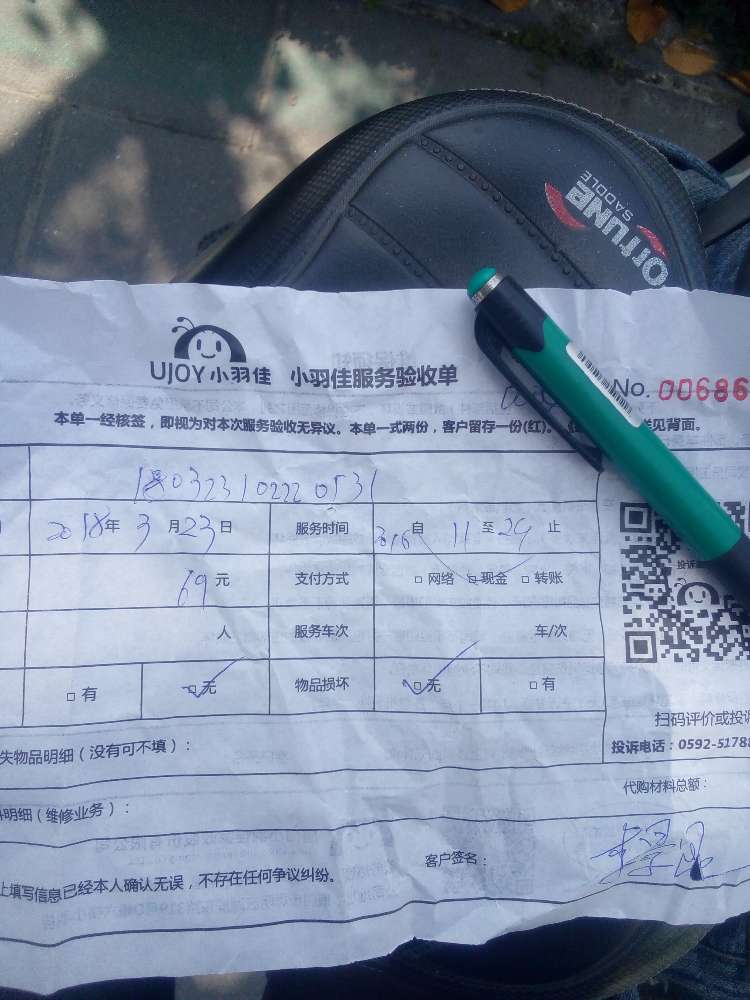 ortune
SADDLE
UJOY小羽佳 小羽佳服务验收单 No. 00686
本单一经核签，即视为对本次服务验收无异议。本单一式两份，客户留存一份(红)。 详见背面。
180323102220531
2018年3月23日 服务时间 自 11 至 29 止
69元 支付方式 □网络 □现金 □转账
人 服务车次 车/次
□有 □无 物品损坏 □无 □有
投诉
扫码评价或投诉
失物品明细（没有可不填）： 投诉电话：0592-51788
代购材料总额：
料明细（维修业务）：
客户签名：
上填写信息已经本人确认无误，不存在任何争议纠纷。